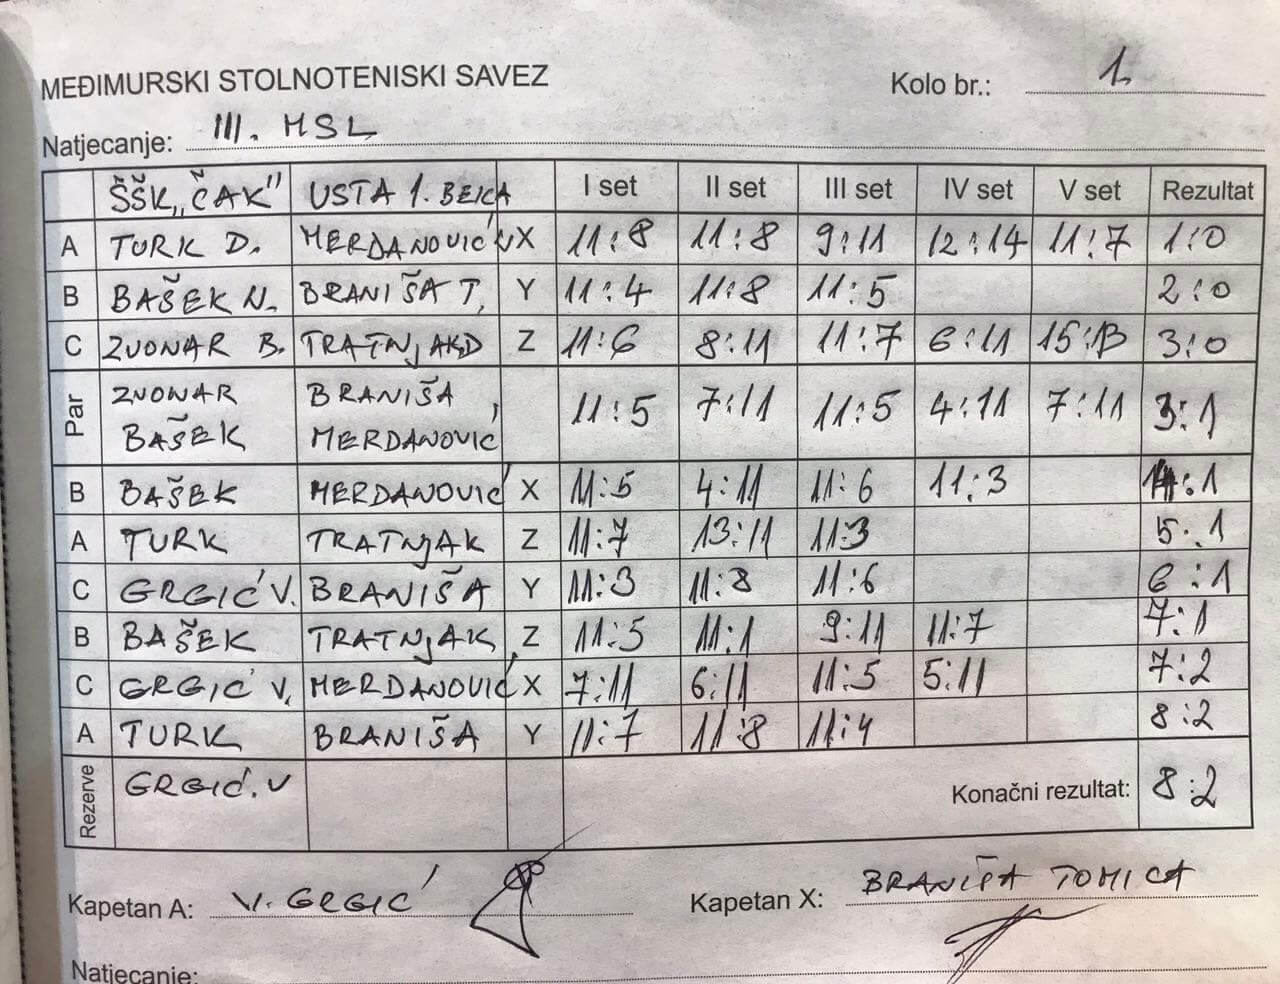 MEĐIMURSKI STOLNOTENISKI SAVEZ
Kolo br.: 1.
Natjecanje: III. MSL
ŠŠK „ČAK" USTA 1. BELCA I set II set III set IV set V set Rezultat
A TURK D. MERDANOVIĆ X 11:8 11:8 9:11 12:14 11:7 1:0
B BAŠEK N. BRANIŠA T. Y 11:4 11:8 11:5 2:0
C ZVONAR B. TRATNJAK D Z 11:6 8:11 11:7 6:11 15:13 3:0
Par ZVONAR BRANIŠA 11:5 7:11 11:5 4:11 7:11 3:1
BAŠEK MERDANOVIĆ
B BAŠEK MERDANOVIĆ X 11:5 4:11 11:6 11:3 4:1
A TURK TRATNJAK Z 11:7 13:11 11:3 5:1
C GRGIĆ V. BRANIŠA Y 11:3 11:8 11:6 6:1
B BAŠEK TRATNJAK Z 11:5 11:1 9:11 11:7 7:1
C GRGIĆ V. MERDANOVIĆ X 7:11 6:11 11:5 5:11 7:2
A TURK BRANIŠA Y 11:7 11:8 11:4 8:2
Rezerve GRGIĆ. V Konačni rezultat: 8:2
Kapetan A: V. GRGIĆ Kapetan X: BRANIŠA TOMICA
Natjecanje: